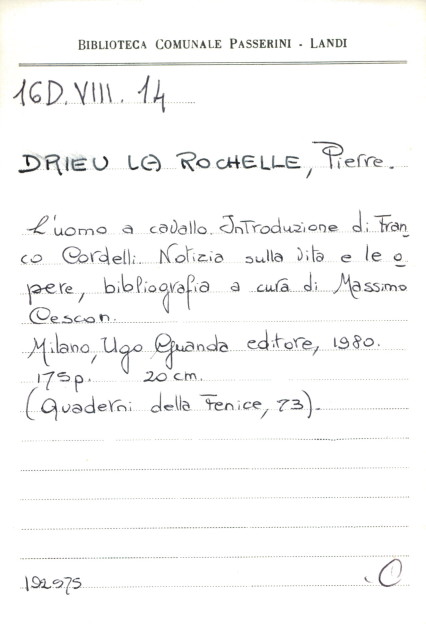 BIBLIOTECA COMUNALE PASSERINI - LANDI
16D.VIII.14
DRIEU LA ROCHELLE, Pierre.
L'uomo a cavallo. Introduzione di Fran
co Cordelli. Notizia sulla vita e le o
pere, bibliografia a cura di Massimo
Cescon.
Milano, Ugo Guanda editore, 1980.
175p. 20 cm.
(Quaderni della Fenice, 73).
192975 C